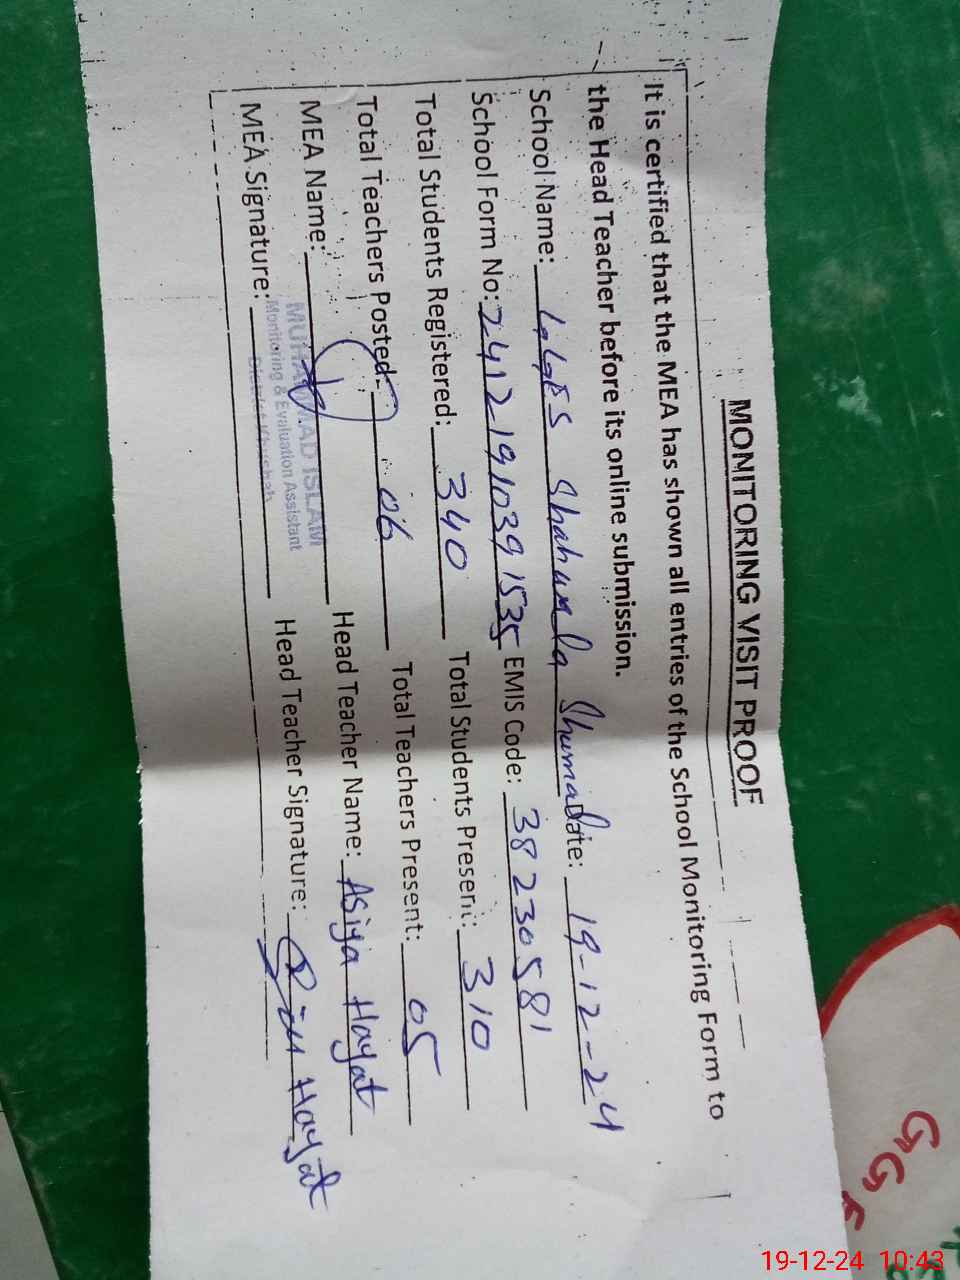 MONITORING VISIT PROOF
It is certified that the MEA has shown all entries of the School Monitoring Form to
the Head Teacher before its online submission.
School Name: GGES Shahwala Shumali Date: 19-12-24
School Form No: 24121910391535 EMIS Code: 38230581
Total Students Registered: 340 Total Students Present: 310
Total Teachers Posted: 06 Total Teachers Present: 05
MEA Name: MUHAMMAD ISLAM Head Teacher Name: Asiya Hayat
Monitoring & Evaluation Assistant
District Khushab
MEA Signature: Head Teacher Signature: Hayat
GGE
19-12-24 10:43